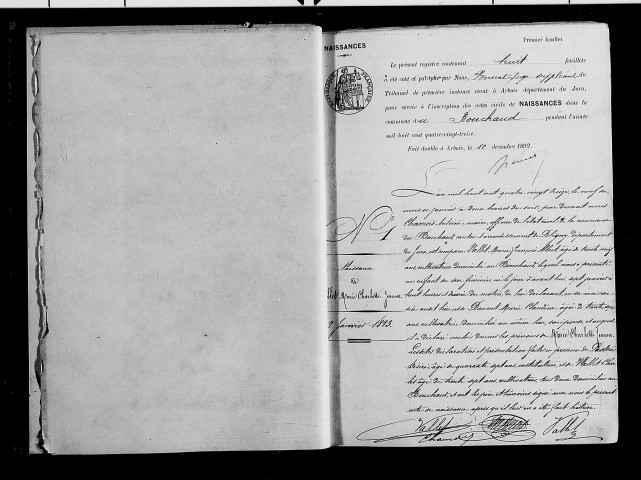 Premier feuillet
NAISSANCES
Le présent registre contenant huit feuillets
a été coté et paraphé par Nous, juge suppléant du
Tribunal de première instance séant à Arbois département du Jura,
pour servir à l'inscription des actes civils de NAISSANCES dans la
commune de Bouchaud pendant l'année
mil huit cent quatre-vingt-treize.
Fait double à Arbois, le 10 décembre 1892.
L'an mil huit cent quatre vingt treize, le neuf du
mois de janvier à deux heures du soir, par devant nous
Chamois Antoine, maire, officier de l'état civil de la commune
du Bouchaud, canton d'arrondissement de Poligny, département
du Jura, est comparu Vallet Marie François Albert, âgé de trente
ans, cultivateur domicilié au Bouchaud, lequel nous a présenté
un enfant du sexe féminin, né le jour d'avant hier, sept janvier à
huit heures et demie du matin, de lui déclarant, en sa maison
Marie Claudine, âgée de trente
ans cultivatrice, domiciliée au même lieu, son épouse, et auquel
il a déclaré vouloir donner les prénoms de Marie Charlotte Jeanne.
Lesdites déclaration et présentation faites en présence de
âgé de quarante sept ans, instituteur, et de Vallet Char
les âgé de trente sept ans, cultivateur, tous deux domiciliés au
Bouchaud, et ont les père et témoins signé avec nous le présent
acte de naissance, après qu'il leur en a été fait lecture.
Vallet Vallet
N° 1
Naissance
de
Vallet Marie Charlotte Jeanne
7 Janvier 1893.